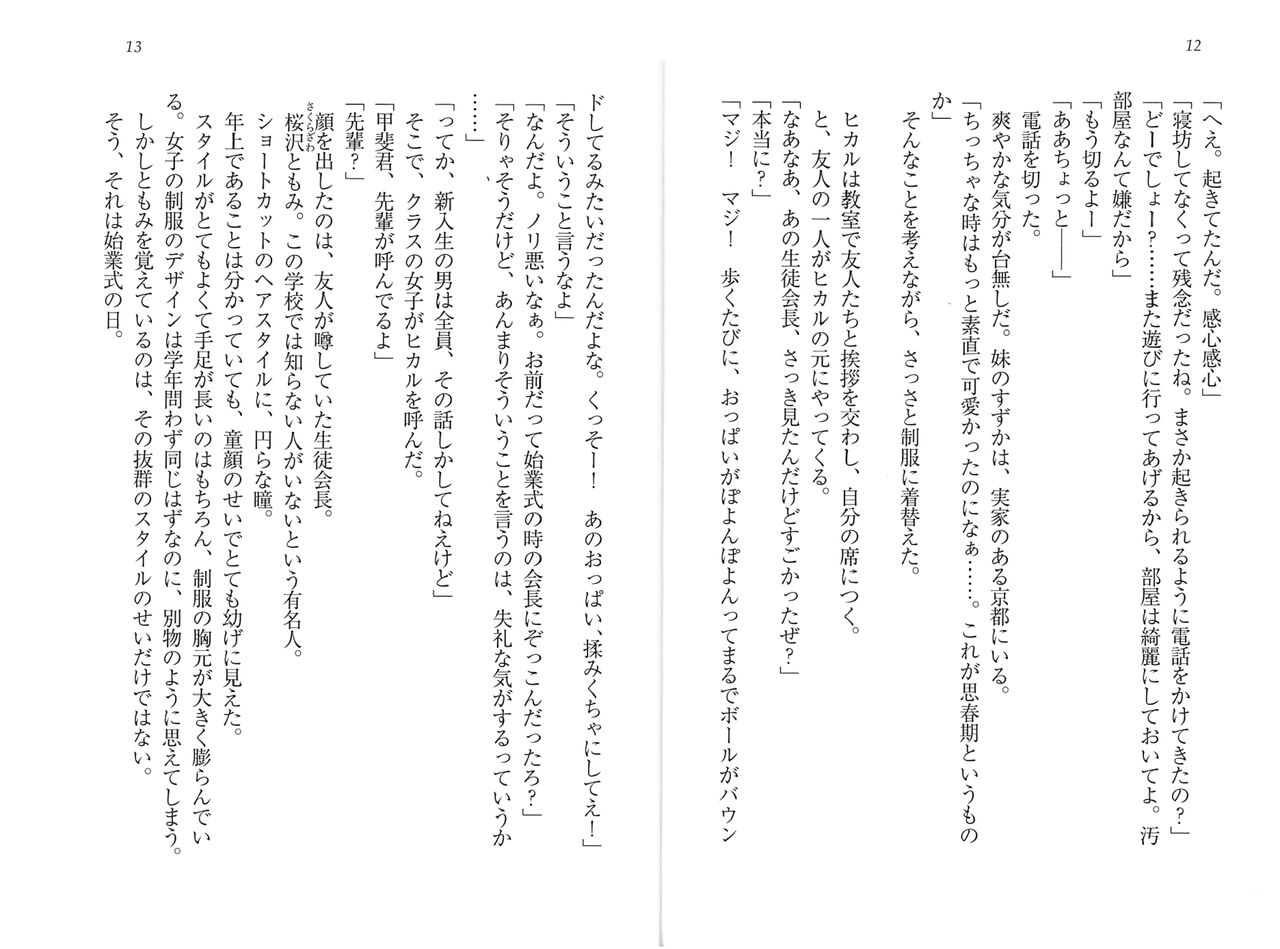 12
「へえ。起きてたんだ。感心感心」
「寝坊してなくって残念だったね。まさか起きられるように電話をかけてきたの？」
「どーでしょー？……また遊びに行ってあげるから、部屋は綺麗にしておいてよ。汚
部屋なんて嫌だから」
「もう切るよー」
「ああちょっと――」
電話を切った。
爽やかな気分が台無しだ。妹のすずかは、実家のある京都にいる。
「ちっちゃな時はもっと素直で可愛かったのになぁ……。これが思春期というもの
か」
そんなことを考えながら、さっさと制服に着替えた。
ヒカルは教室で友人たちと挨拶を交わし、自分の席につく。
と、友人の一人がヒカルの元にやってくる。
「なあなあ、あの生徒会長、さっき見たんだけどすごかったぜ？」
「本当に？」
「マジ！　マジ！　歩くたびに、おっぱいがぽよんぽよんってまるでボールがバウン
13
ドしてるみたいだったんだよな。くっそー！　あのおっぱい、揉みくちゃにしてえ！」
「そういうこと言うなよ」
「なんだよ。ノリ悪いなぁ。お前だって始業式の時の会長にぞっこんだったろ？」
「そりゃそうだけど、あんまりそういうことを言うのは、失礼な気がするっていうか
……」
「ってか、新入生の男は全員、その話しかしてねえけど」
そこで、クラスの女子がヒカルを呼んだ。
「甲斐君、先輩が呼んでるよ」
「先輩？」
顔を出したのは、友人が噂していた生徒会長。
さくらざわ
桜沢ともみ。この学校では知らない人がいないという有名人。
ショートカットのヘアスタイルに、円らな瞳。
年上であることは分かっていても、童顔のせいでとても幼げに見えた。
スタイルがとてもよくて手足が長いのはもちろん、制服の胸元が大きく膨らんでい
る。女子の制服のデザインは学年問わず同じはずなのに、別物のように思えてしまう。
しかしともみを覚えているのは、その抜群のスタイルのせいだけではない。
そう、それは始業式の日。